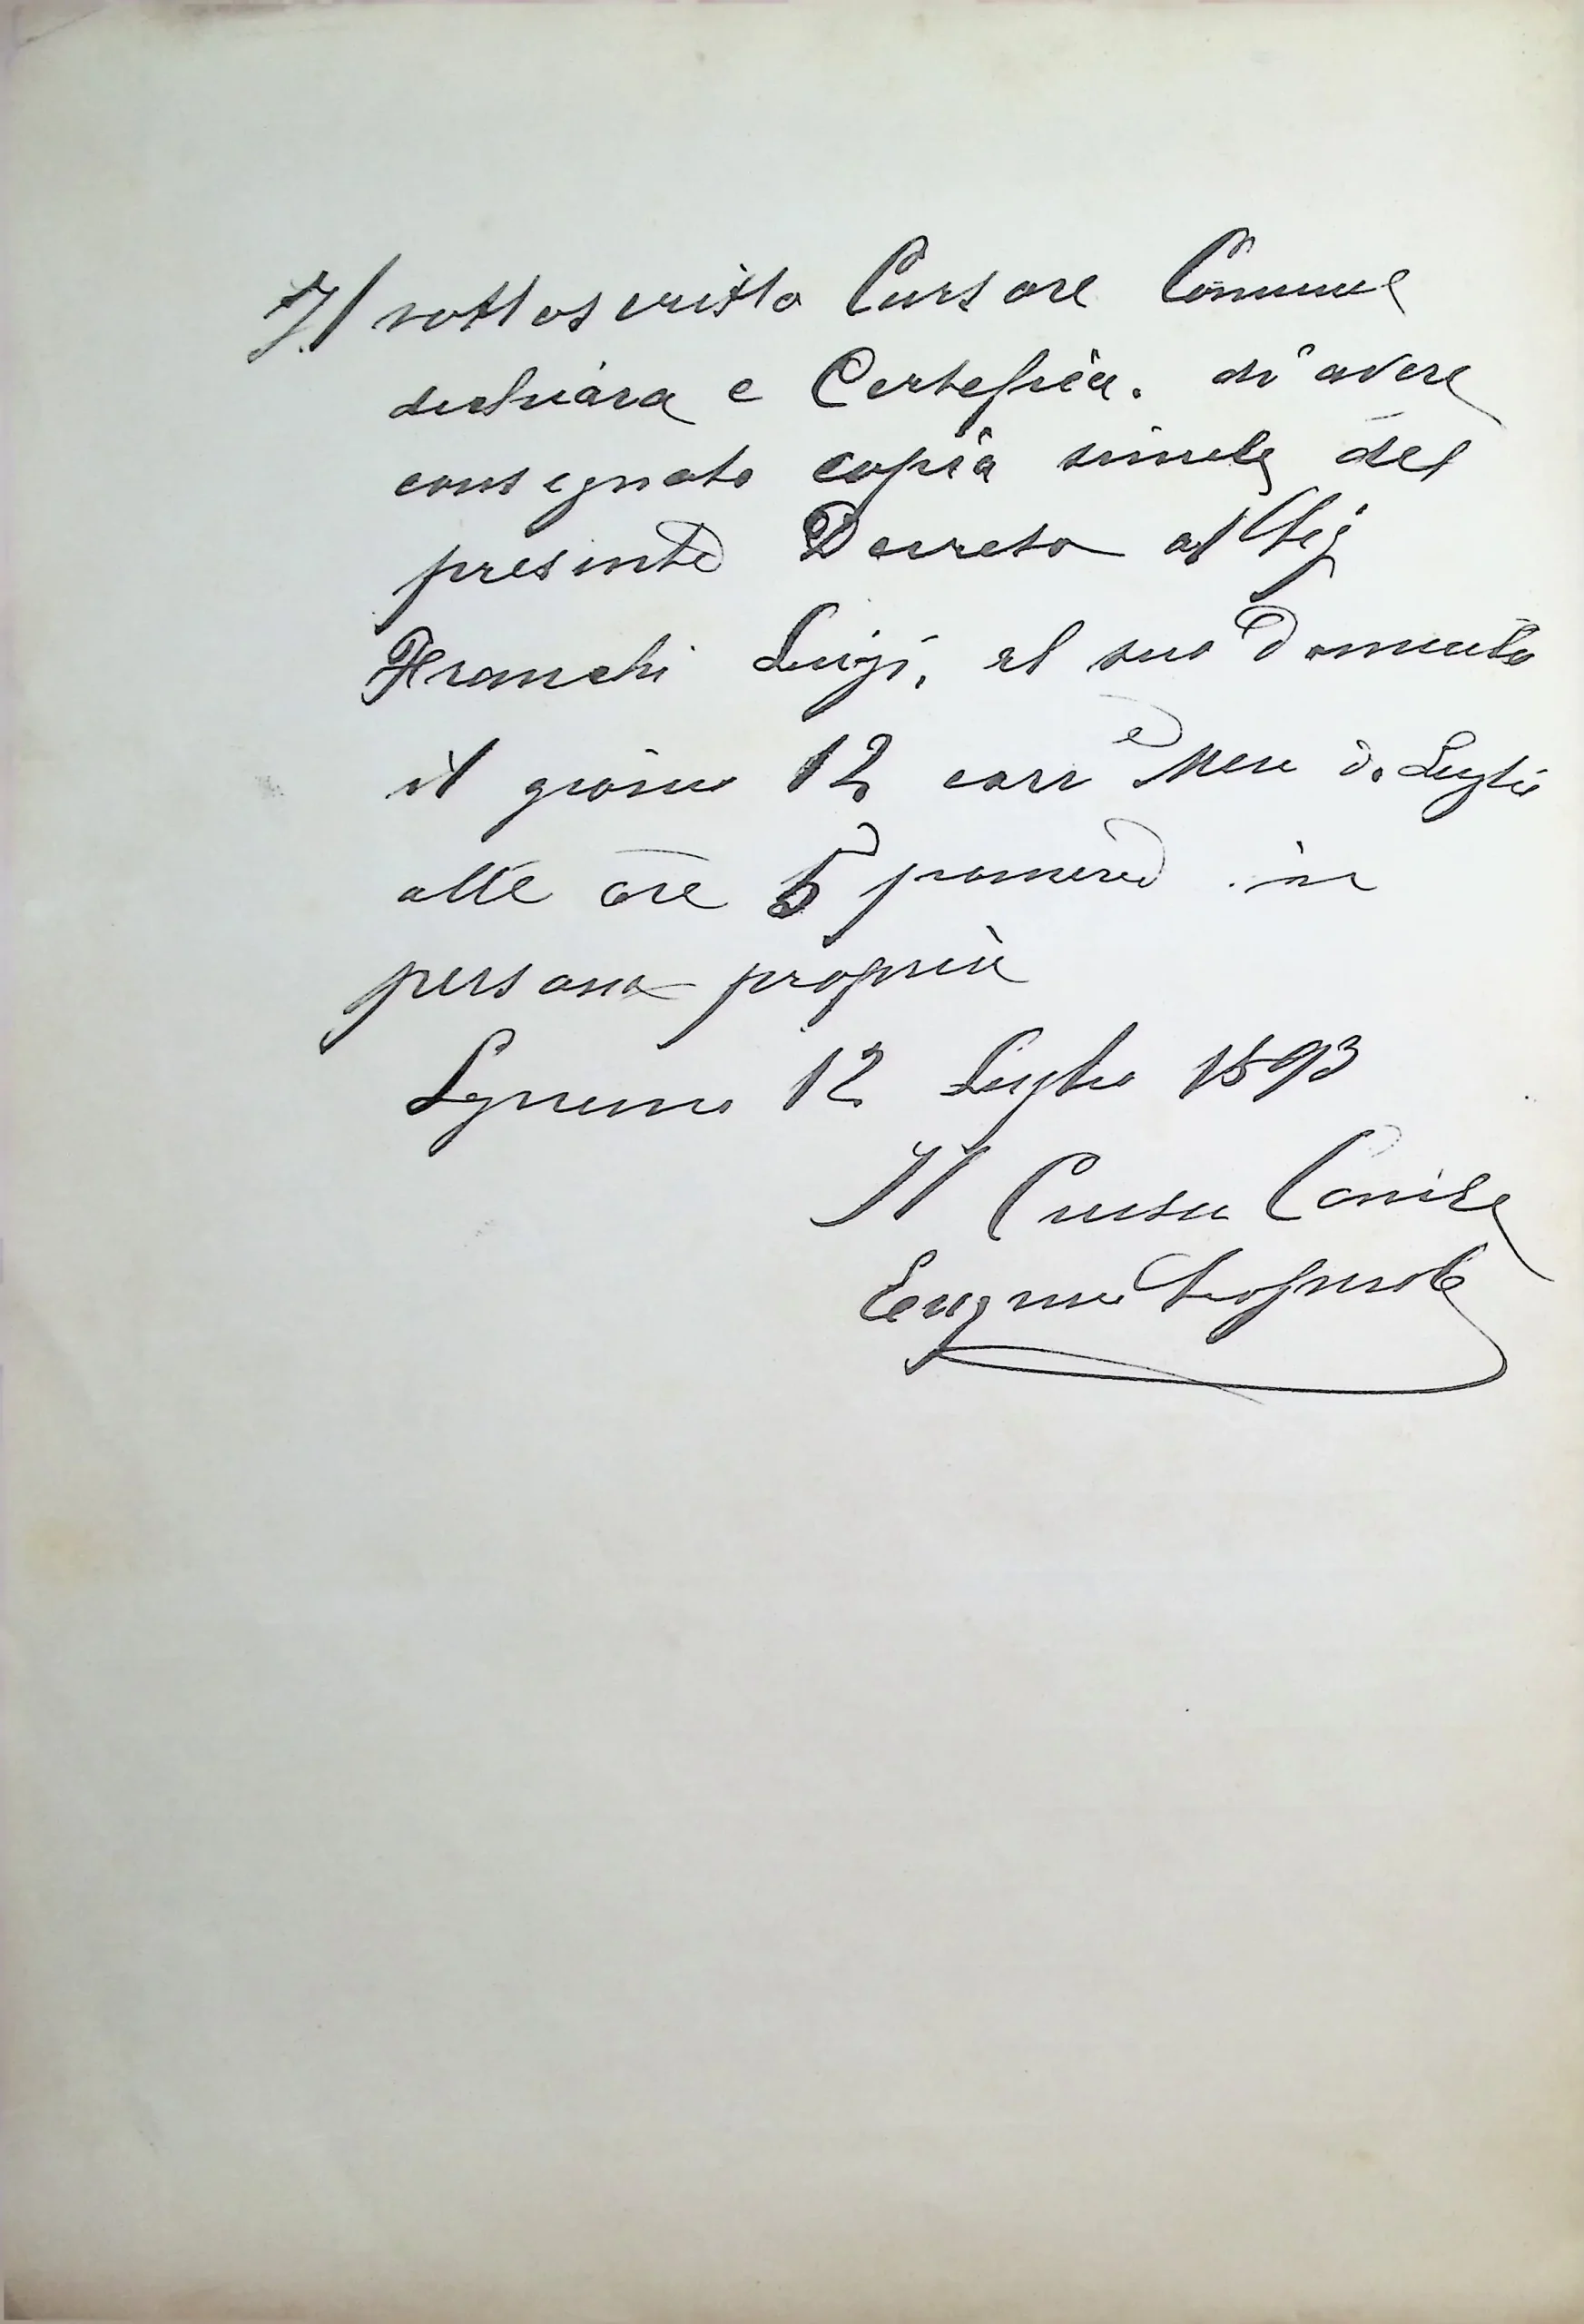 Il sottoscritto Cursore Comune
dichiara e Certefica. di avere
consegnato copia simile del
presente Decreto al Sig
Franchi Luigi, al suo Domicilio
il giorno 12 corre Mese di Luglio
alle ore 5 pomerid in
persona propria
12 Luglio 1893
Il Cursore
Eugenio